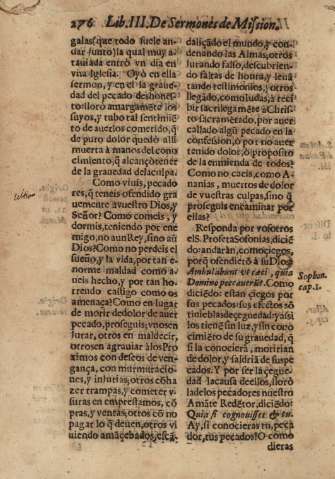 276 Lib. III. De Sermones de Mission.
galas (que todo suele an-
dar junto) la qual muy a-
tauiada entrò vn dia en
vna Iglesia. Oyò en ella
sermon, y en el la graue-
dad del pecado deshones-
to: llorò amargamẽte los
suyos, y tubo tal sentimiẽ
to de auerlos cometido, q̃
de puro dolor quedò alli
muerta à manos del cono
cimiento, q̃ alcançò tener
de la grauedad de la culpa.
Como viuis, pecado
res, q̃ teneis ofendido gra
uemente à vuestro Dios, y
Señor? Como comeis, y
dormis, teniendo por ene
migo, no aun Rey, sino aũ
Dios? Como no perdeis el
sueño, y la vida, por tan e-
norme maldad como a-
ueis hecho, y por tan ho-
rrendo castigo como os
amenaça? Como en lugar
de morir de dolor de auer
pecado, proseguis, vnos en
jurar, otros en maldecir,
otros en agrauiar à los Pro
ximos con deseos de ven-
gança, con murmuracio-
nes, y injurias, otros cõ ha
zer trampas, y cometer v-
suras en emprestamos, cõ
pras, y ventas, otros cõ no
pagar lo q̃ deuen, otros vi
uiendo amãcebados, escã-
daliçãdo el mundo, y con
denando las Almas, otros
jurando falso, descubrien-
do faltas de honra, y leuã
tando testimonios, otros
llegãdo, como Iudas, à reci
bir sacrilegamẽte à Chris-
to sacramẽtado, por auer
callado algũ pecado en la
confession, ò por no auer
tenido dolor, ò proposito
de la enmienda de todos?
Como no caeis, como A-
nanias, muertos de dolor
de vuestras culpas, sino q̃
proseguis en caminar por
ellas?
Responda por vosotros
el S. Profeta Sofonias, diciẽ
do: andarãn, como ciegos,
porq̃ ofendierõ à su Dios:
Ambulabunt vt cæci, quia
Domino peccauerũt. Como
diciẽdo: estàn ciegos por
sus pecados: sus efectos sõ
tinieblas de ceguedad: y assi
los tiene sin luz, y sin cono
cimiẽto de su grauedad, q̃
si la conocierã, moririan
de dolor, y saldrià de sus pe
cados. Y por ser la çegue-
dad la causa de ellos, llorò
la de los pecadores nuestro
Amãte Redẽtor, diciẽdo:
Quia si cognouisses & tu.
Ay, si conocieras tu, peca
dor, tus pecados! O como
dieras
Sophon.
cap. 1.